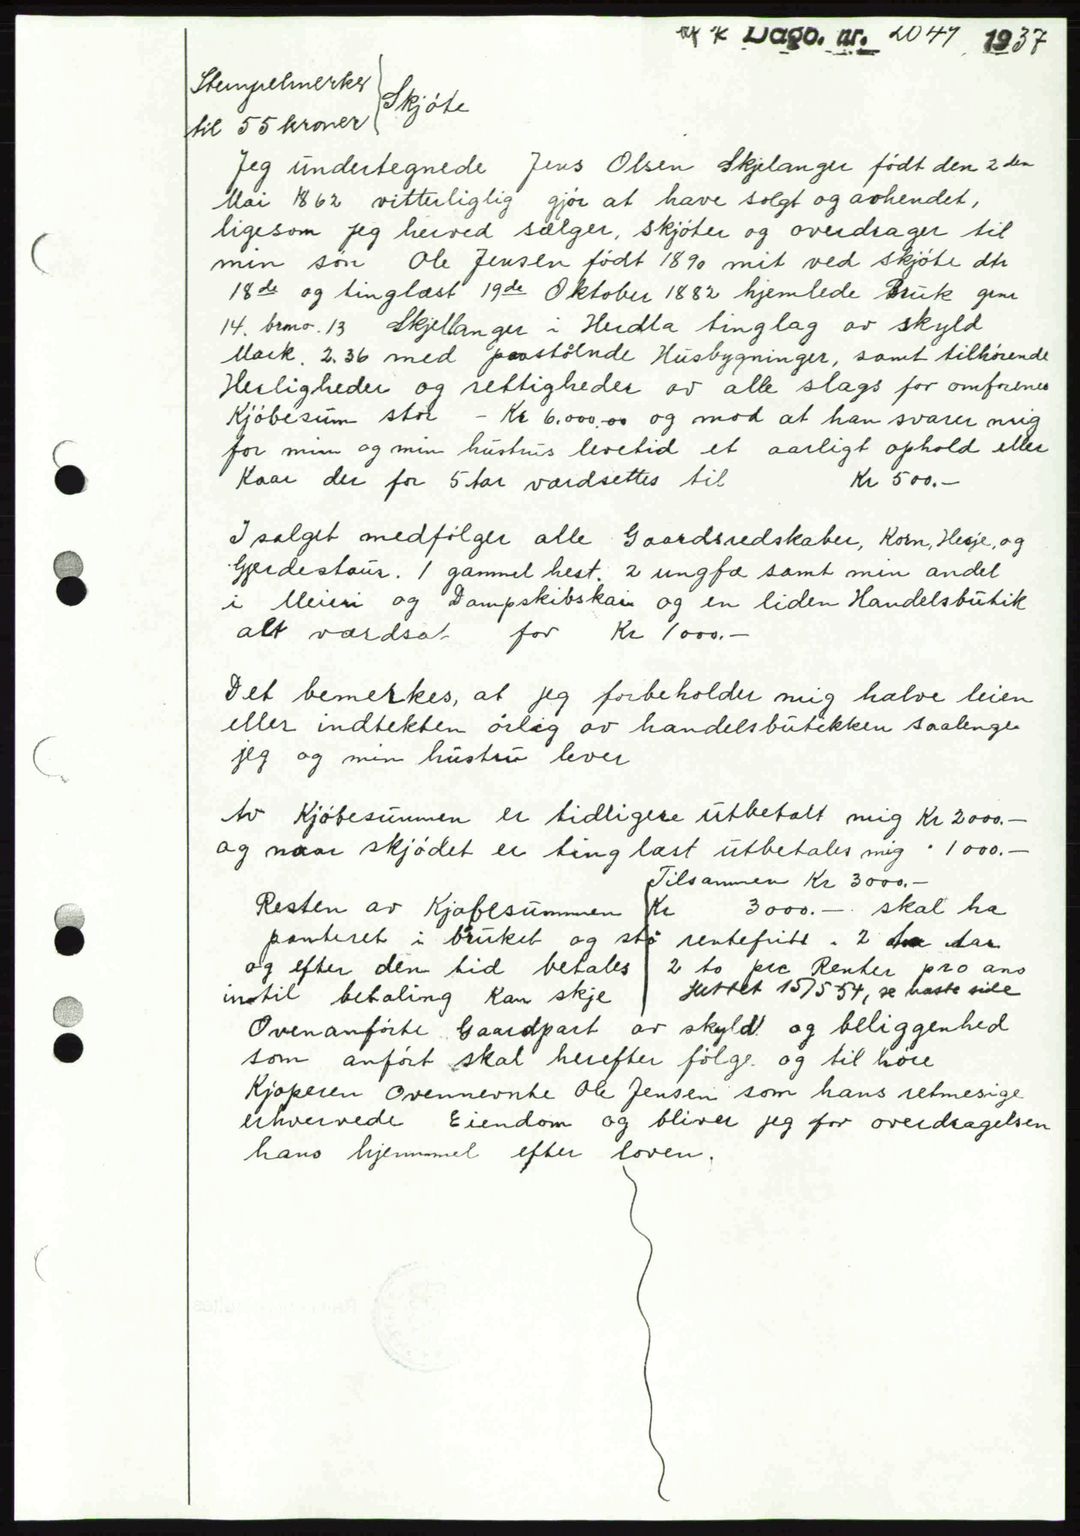 Dago. nr. 2047 1937
Stempelmerker
til 55 kroner
Skjóte
Jeg undertegnede Jens Olsen Skjelanger født den 2 den
Mai 1862 vitterliglig gjör at have solgt og avhendet,
ligesom jeg herved sælger, skjöter og overdrager til
min sön Ole Jensen födt 1890 mit ved skjöte dtr
18de og tinglæst 19de Oktober 1882 hjemlede Bruk grnr
14. brno. 13 Skjellanger i Herdla tinglag av skyld
Mark. 2.36 med paastölnde Husbygninger, samt tilhörende
Herligheder og rettigheder av alle slags for omforenet
Kjöbesum stor - Kr 6.000.00 og mod at han svarer mig
for min og min hustrus levetid et aarligt ophold eller
Kaar der for 5 aar værdsettes til Kr 500.-
I salget medfölger alle Gaardsredskaber, Korn, Hesje, og
Gjerdestaur. 1 gammel hest. 2 ungfæ samt min andel
i Meieri og Dampskibskai og en liden Handelsbutik
alt værdsat for Kr 1000.-
Det bemerkes, at jeg forbeholder mig halve leien
eller indtekten örlig av handelsbutikken saalenge
jeg og min hustru lever
Av Kjöbesummen er tidligere utbetalt mig Kr 2000.-
og naar skjödet er ting læst utbetales mig " 1000.-
Tilsammen Kr 3000.-
Resten av Kjøbesummen Kr 3000.- skal ha
panteret i bruket og stö rentefritt . 2 aar
og efter den tid betales 2 to prc Renter pro ano
inntil betaling Kan skje
Slettet 15/5 54, se næste side
Ovenanförte Gaardpart av skyld og beliggenhed
som anfört skal herefter fölge og til höre
Kjøperen ovennevnte Ole Jensen som hans retmesige
erhvervede Eiendom og bliver jeg for overdragelsen
hans hjemmel efter loven.